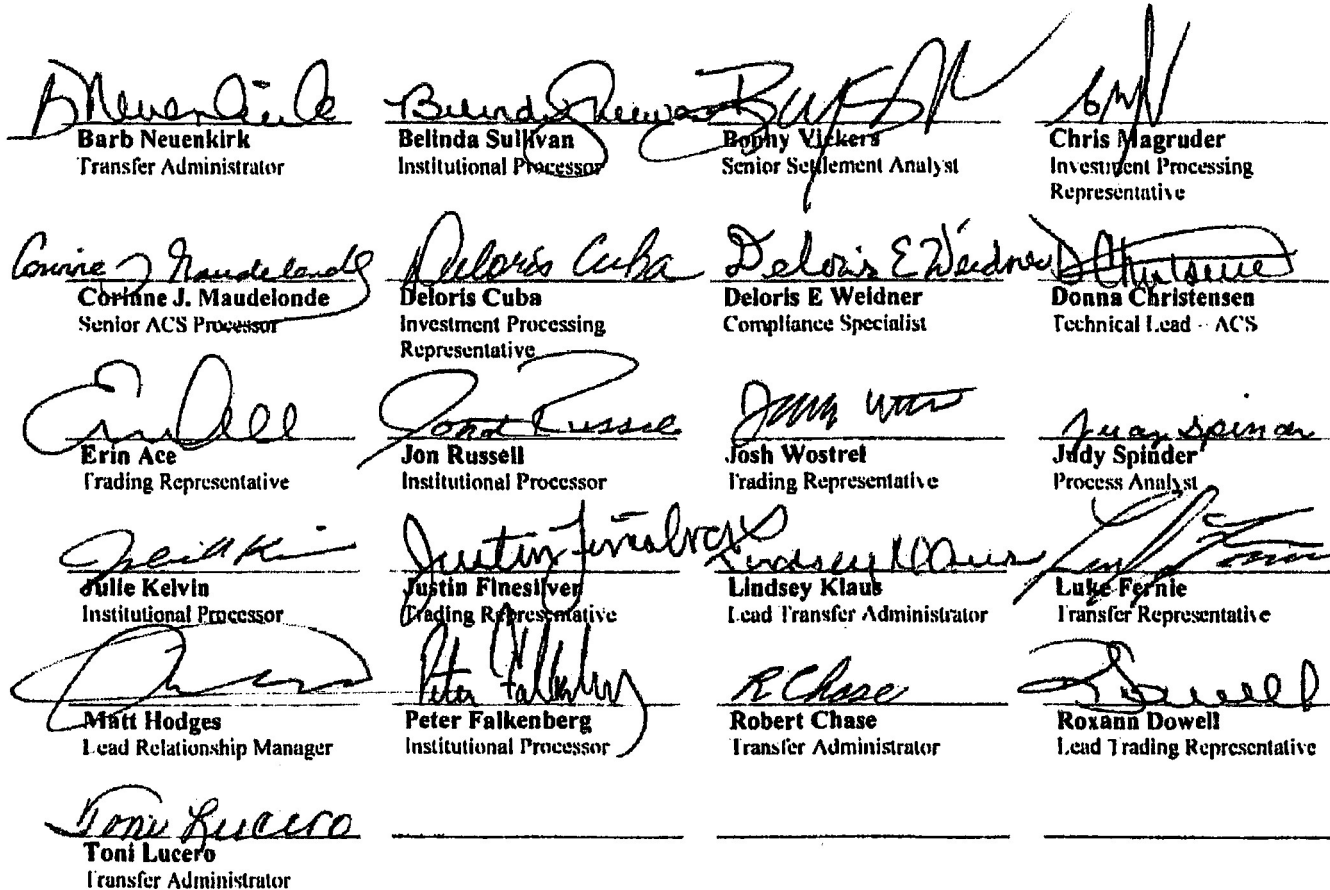 Barb Neuenkirk
Transfer Administrator
Belinda Sullivan
Institutional Processor
Bonny Vickers
Senior Settlement Analyst
Chris Magruder
Investment Processing
Representative
Corinne J Maudelonde
Corinne J. Maudelonde
Senior ACS Processor
Deloris Cuba
Deloris Cuba
Investment Processing
Representative
Deloris E Weidner
Deloris E Weidner
Compliance Specialist
D Christensen
Donna Christensen
Technical Lead - ACS
Erin Ace
Trading Representative
Jon Russell
Institutional Processor
Josh Wostrel
Trading Representative
Judy Spinder
Process Analyst
Julie Kelvin
Institutional Processor
Justin Finesilver
Trading Representative
Lindsey Klaus
Lindsey Klaus
Lead Transfer Administrator
Luke Fernie
Transfer Representative
Matt Hodges
Lead Relationship Manager
Peter Falkenberg
Peter Falkenberg
Institutional Processor
R Chase
Robert Chase
Transfer Administrator
Roxann Dowell
Lead Trading Representative
Toni Lucero
Toni Lucero
Transfer Administrator